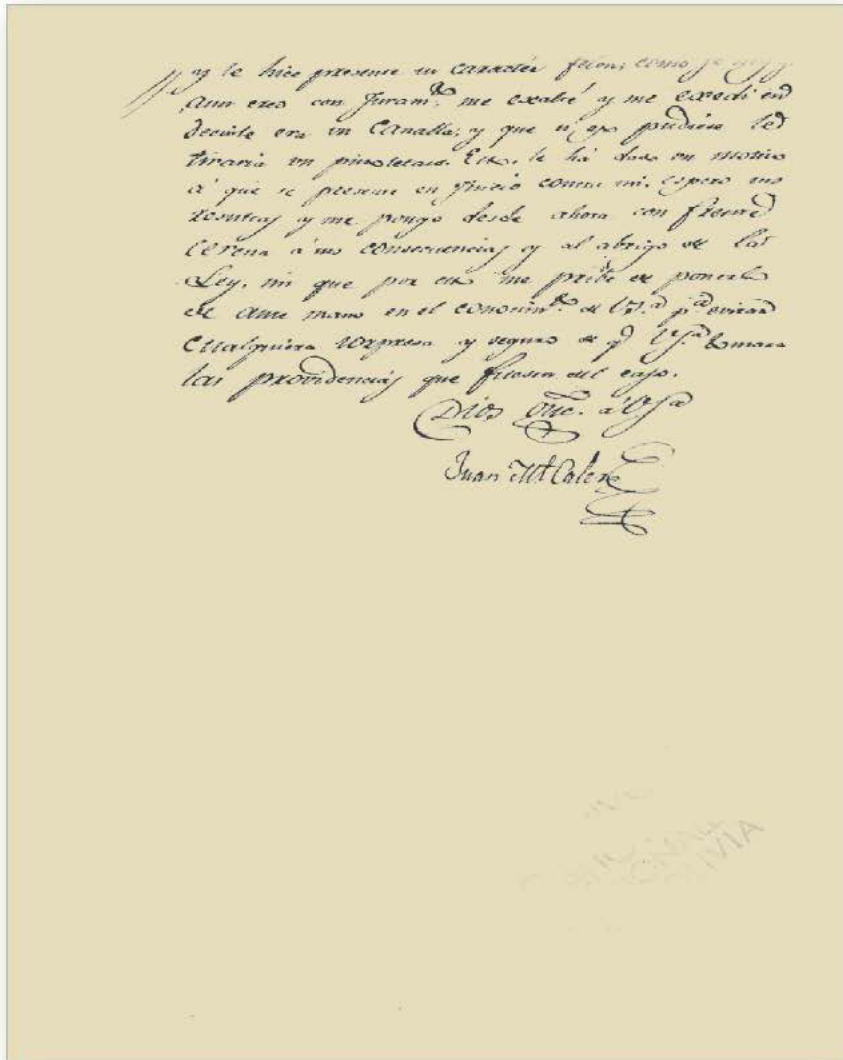 y le hice presente su caracter feroz, como
Aun creo con Juram.to me exalté y me exedi en
decirle era un Canalla; y que si yo pudiese le
tiraria un pistoletazo. Esto, le há dado un motivo
á que se presente en Juicio contra mi, espero sus
resultas y me pongo desde ahora con frente
cerena á sus consecuencias y al abrigo de la
Ley, sin que por esto me pribe de ponerlo
de ante mano en el conocim.to de V.S.a p.a evitar
cualquiera sorpresa y seguro de q.e V.S.a tomara
las providencias que fuesen del caso.
Dios gue. á V.S.a
Juan M.l Calero
BOLIVIA